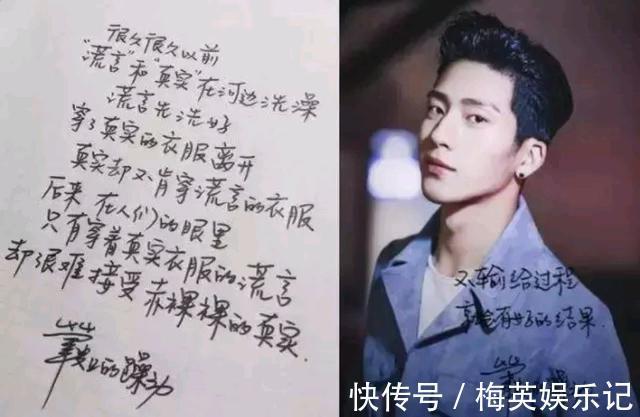 很久很久以前
“谎言”和“真实”在河边洗澡
谎言先洗好
穿了真实的衣服离开
真实却不肯穿谎言的衣服
后来 在人们的眼里
只有穿着真实衣服的谎言
却很难接受赤裸裸的真实.
的躁动
不输给过程
就会有好的结果.
快传号 / 梅英娱乐记